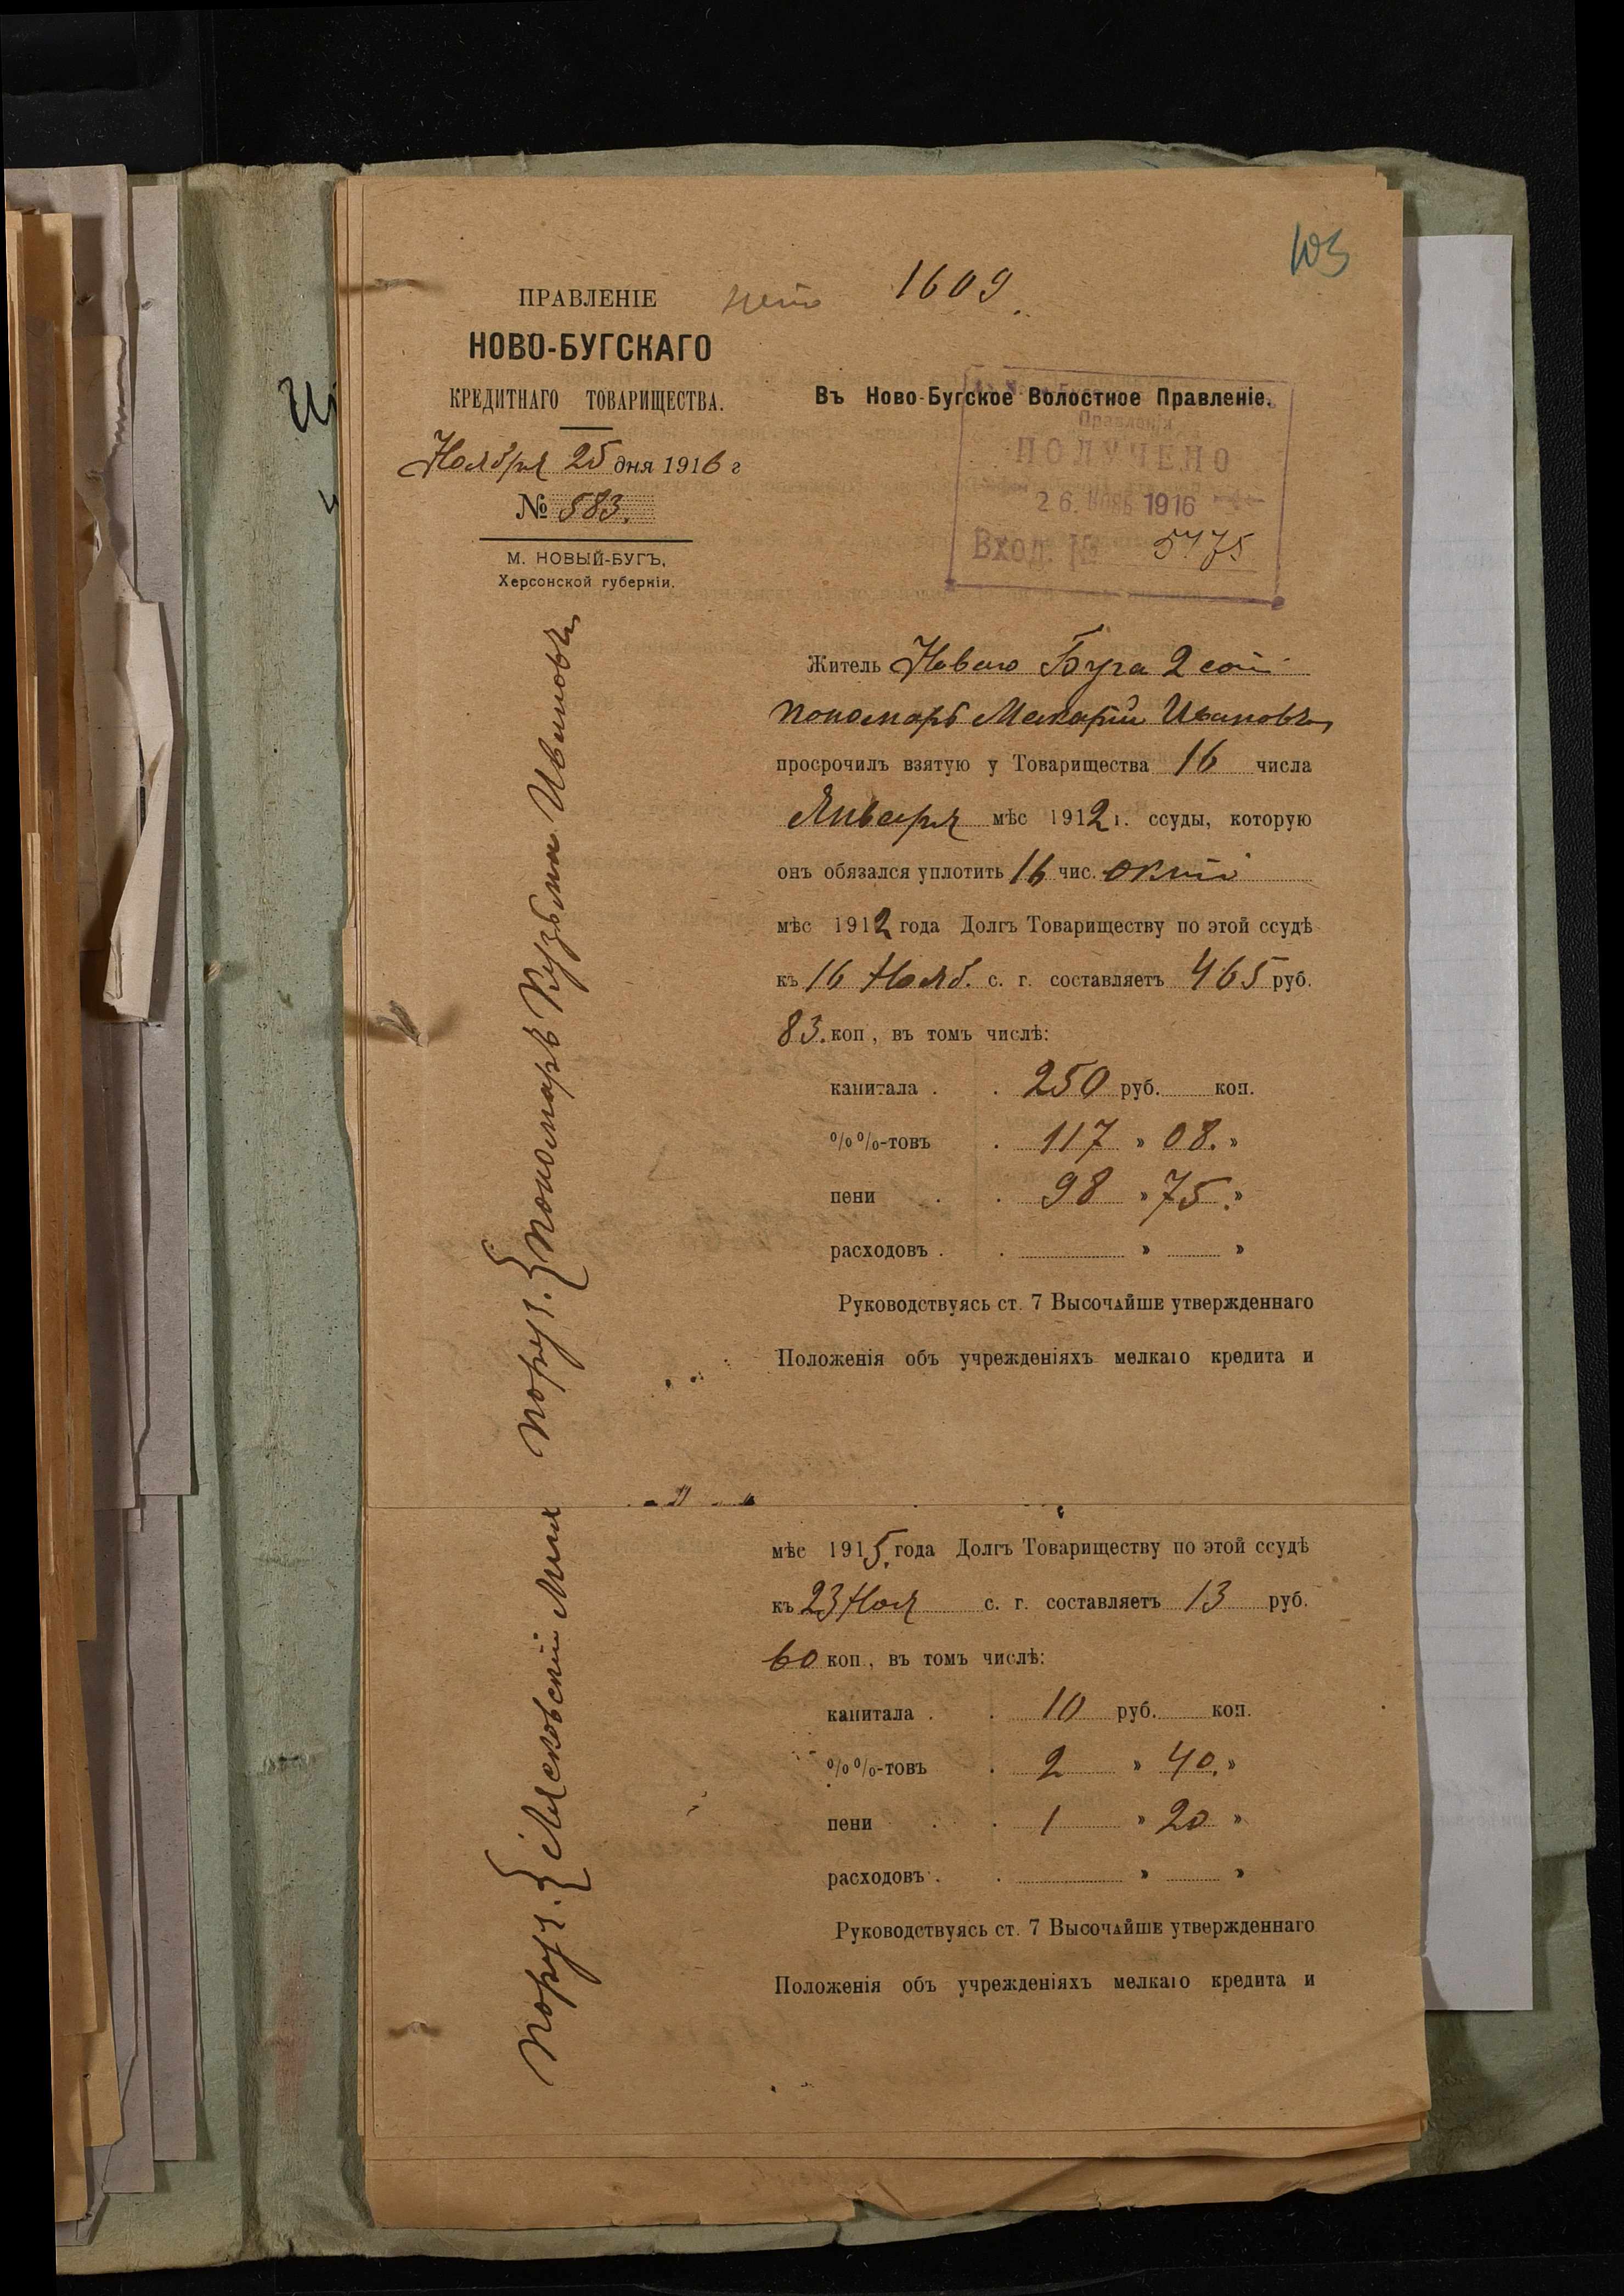 103
1609
ПРАВЛЕНІЕ
НОВО-БУГСКАГО
КРЕДИТНАГО ТОВАРИЩЕСТВА.
Ноября 25 дня 1916 г
№ 583.
М. НОВЫЙ-БУГЪ,
Херсонской губерніи.
Въ Ново-Бугское Волостное Правленіе.
Правленія
ПОЛУЧЕНО
26. 1916
Вход. № 5475
Житель Новаго Буга 2 сот
Пономарь Макарій Ивановъ
просрочилъ взятую у Товарищества 16 числа
Января мѣс 1912 г. ссуды, которую
онъ обязался уплотить 16 чис. Окт
мѣс 1912 года Долгъ Товариществу по этой ссудѣ
къ 16 Нояб. с. г. составляетъ 465 руб.
83. коп., въ томъ числѣ:
капитала . . 250 руб. коп.
%%-товъ . 117 » 08. »
пени . . 98 » 75. »
расходовъ . . » »
Руководствуясь ст. 7 Высочайше утвержденнаго
Положенія объ учрежденіяхъ мелкаго кредита и
Поруч. { Пономарь Кузьма Ивановъ
мѣс 1915 года Долгъ Товариществу по этой ссудѣ
къ 23 Ноя с. г. составляетъ 13 руб.
60 коп., въ томъ числѣ:
капитала . . 10 руб. коп.
%%-товъ . 2 » 40. »
пени . . 1 » 20 »
расходовъ . . » »
Руководствуясь ст. 7 Высочайше утвержденнаго
Положенія объ учрежденіяхъ мелкаго кредита и
Поруч. {